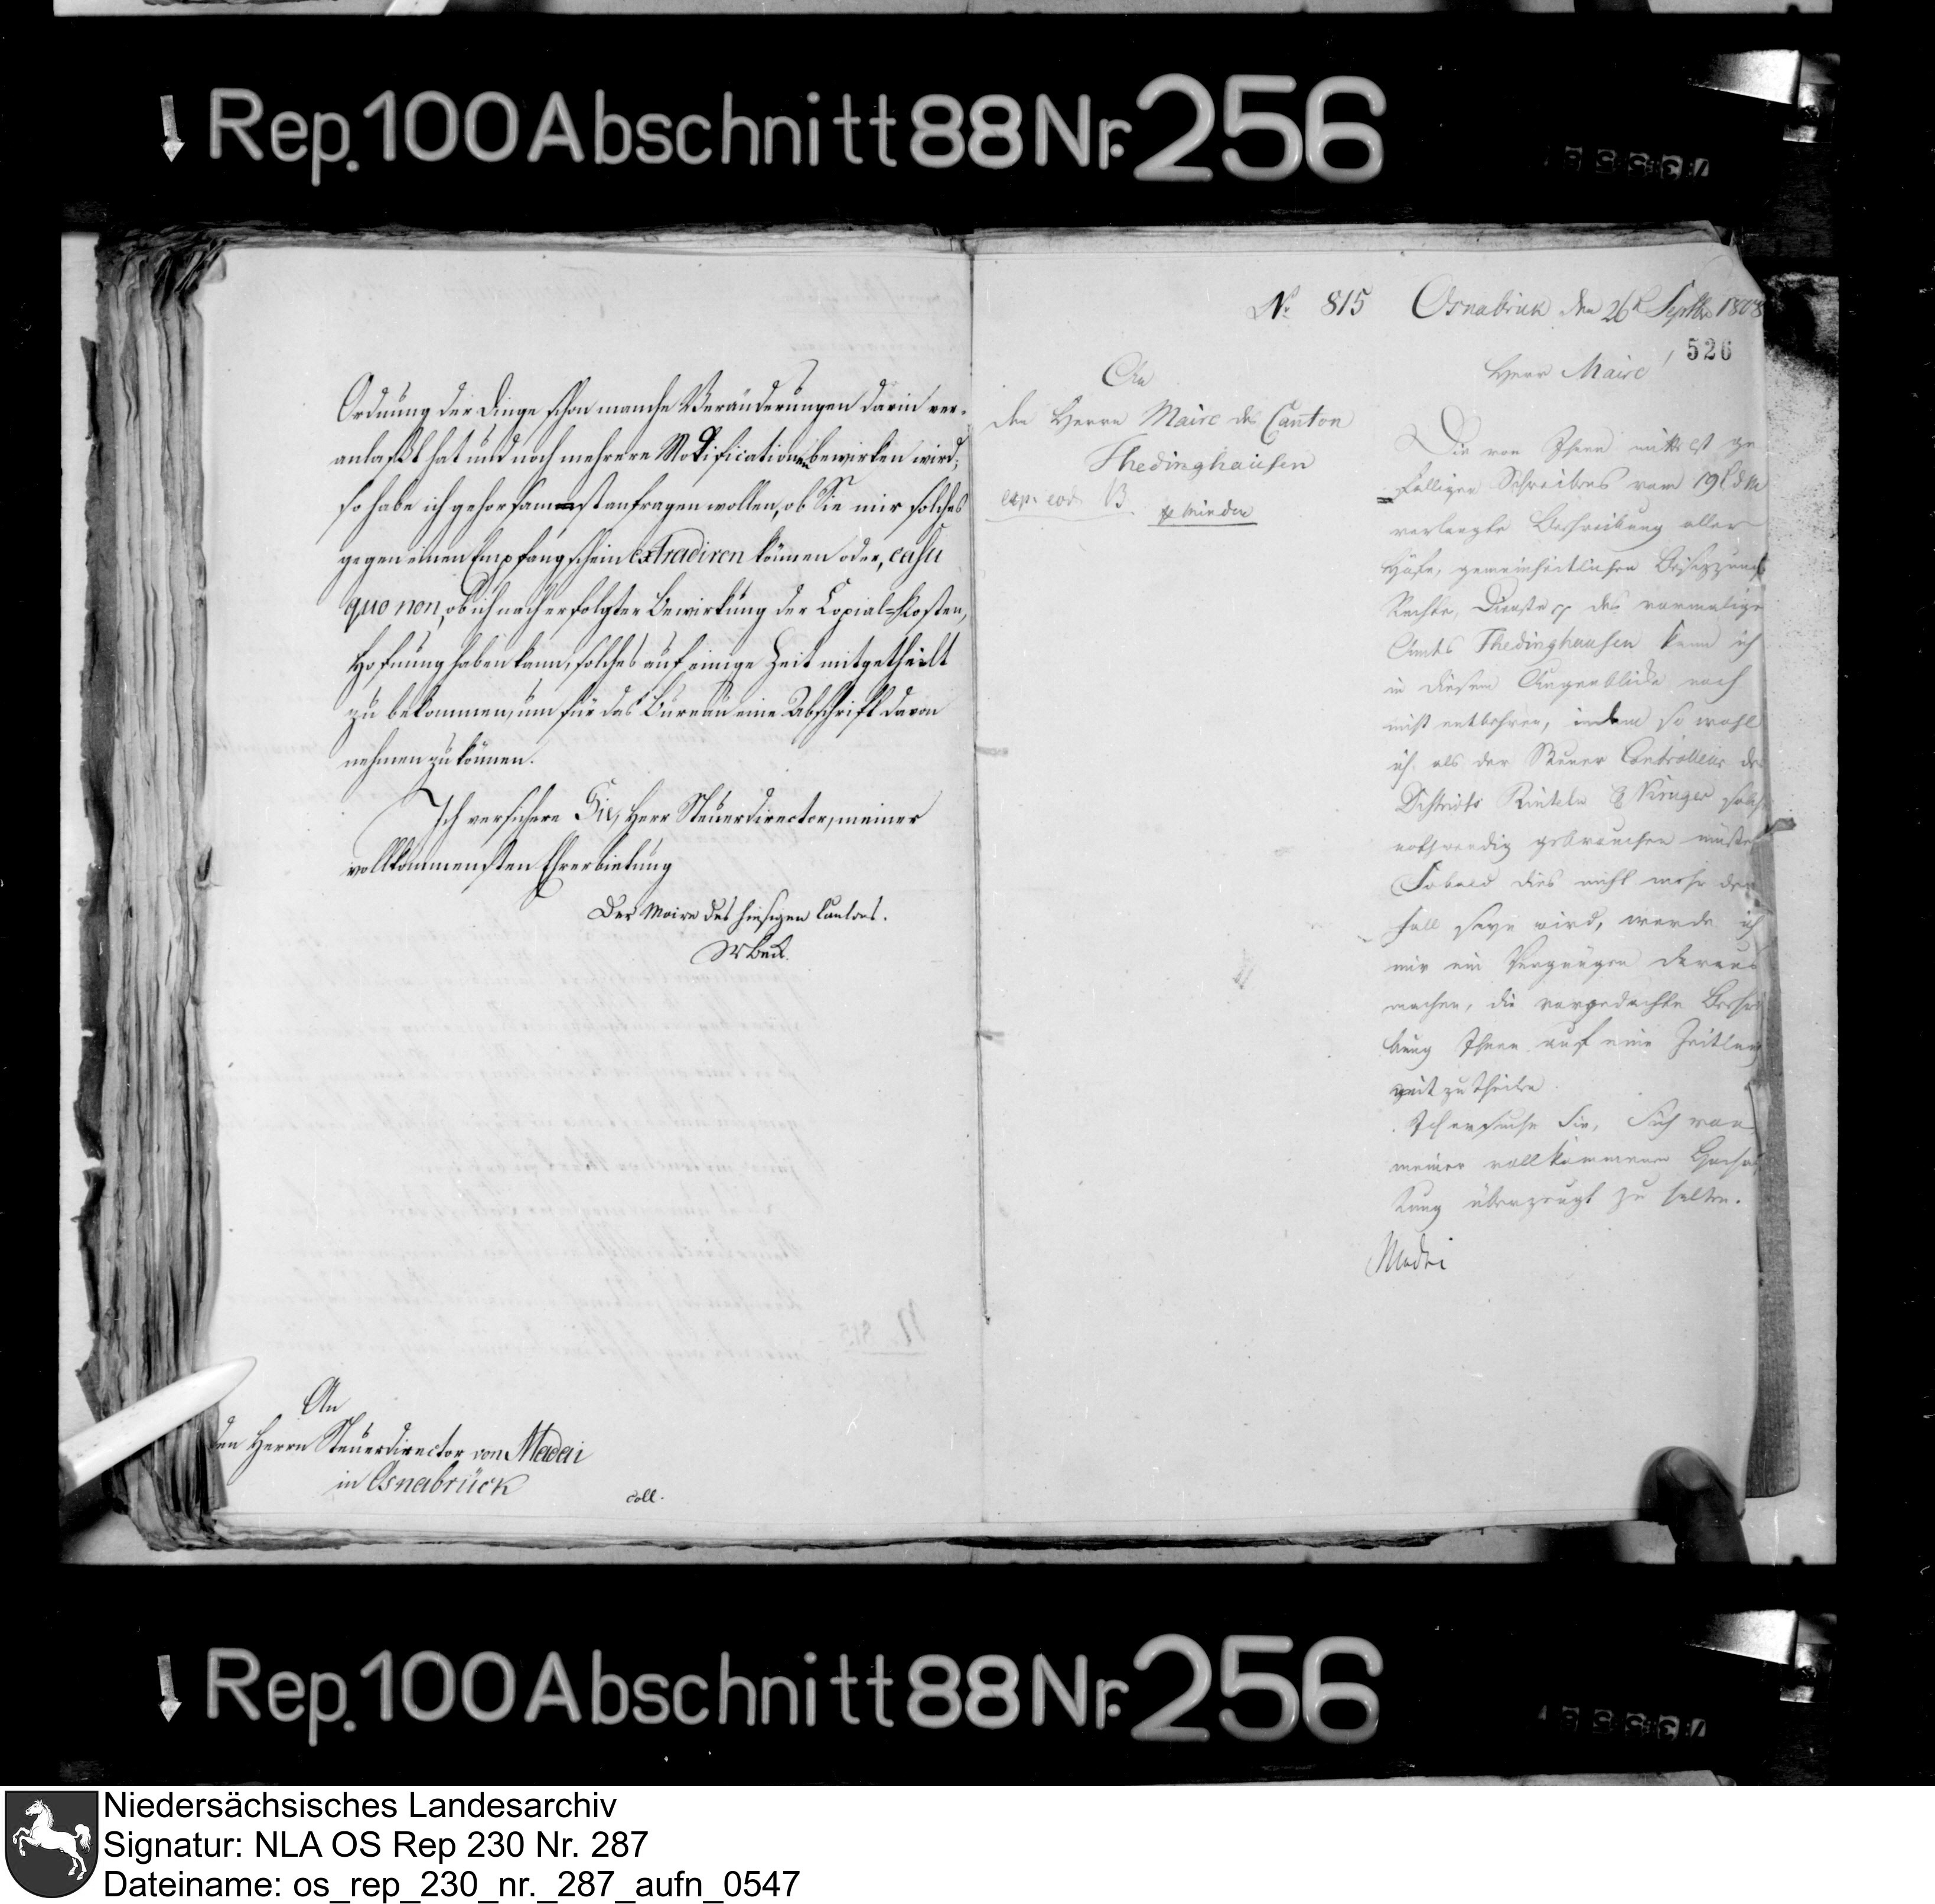 Rep. 100 Abschnitt 88 Nr. 256
Ordnung der Dinge schon manche Veränderungen darin ver-
anlaßt hat und noch mehrere Modificationen bewirken wird;
so habe ich gehorsamst anfragen wollen, ob Sie mir solches
gegen einen Empfangschein extradiren können oder, casu
quo non, ob ich nach erfolgter Bewirkung der Copial-Kosten,
Hofnung haben kann, solches auf einige Zeit mitgetheilt
zu bekommen, um für das Bureau eine Abschrift davon
nehmen zu können.
Ich versichere Sie, Herr Steuerdirector, meiner
vollkommensten Ehrerbietung
Der Maire des hiesigen Cantons.
An
den Herrn Steuerdirector von Madai
in Osnabrück
coll.
No. 815 Osnabrück den 26t Septbr 1808
526
Herr Maire!
An
den Herrn Maire des Canton
Thedinghausen
exp. eod. B. p Minden
Die von Ihnen mittelst ge-
fälligen Schreibens vom 19t d M
verlangte Beschreibung aller
Höfe, gemeinheitlichen Besitzungen
Rechte, Dienste p des vormaligen
Amts Thedinghausen kann ich
in diesem Augenblicke noch
nicht entbehren, indem so wohl
ich als der Steuer Controlleur des
Districts Rinteln Kruger solche
nothwendig gebrauchen müssen
Sobald dies nicht mehr der
Fall seyn wird, werde ich
mir ein Vergnügen daraus
machen, die vorgedachte Beschrei
bung Ihnen auf eine Zeitlang
mit zu theilen.
Ich ersuche Sie, Sich von
meiner vollkommenen Hochach
tung überzeugt zu halten.
Madai
Rep. 100 Abschnitt 88 Nr. 256
Niedersächsisches Landesarchiv
Signatur: NLA OS Rep 230 Nr. 287
Dateiname: os_rep_230_nr._287_aufn_0547